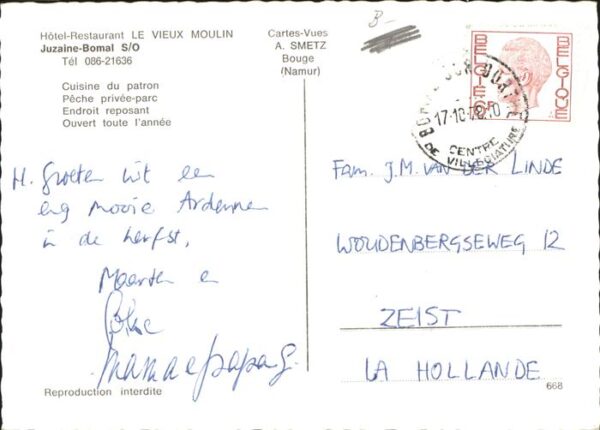 Hôtel-Restaurant LE VIEUX MOULIN
Juzaine-Bomal S/O
Tél 086-21636
Cuisine du patron
Pêche privée-parc
Endroit reposant
Ouvert toute l'année
Cartes-Vues
A. SMETZ
Bouge
(Namur)
B-
BELGIE 6F BELGIQUE
17-10
CENTRE
DE VILLEGIATURE
H. Groeten uit een
erg mooie Ardennen
in de herfst,
Maarten en
mama e papa G.
Fam. J.M. VAN DER LINDE
WOUDENBERGSEWEG 12
ZEIST
LA HOLLANDE
Reproduction interdite
668